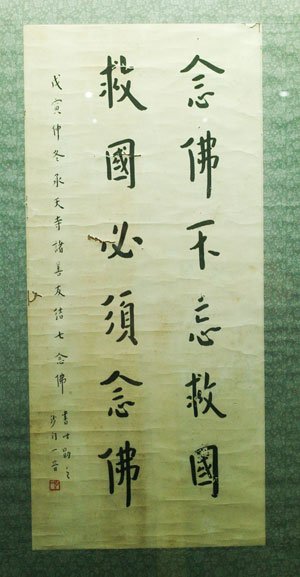 念佛不忘救國
救國必須念佛
戊寅仲冬承天寺諸善友結七念佛
書此勗之
沙門一音